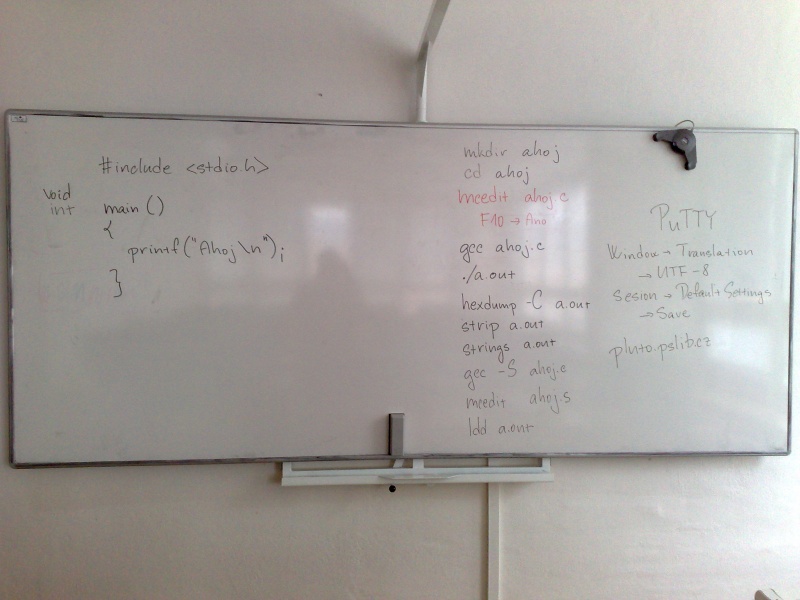 #include <stdio.h>
void
int main ()
{
printf("Ahoj\n");
}
mkdir ahoj
cd ahoj
mcedit ahoj.c
F10 → Ano
gcc ahoj.c
./a.out
hexdump -C a.out
strip a.out
strings a.out
gcc -S ahoj.c
mcedit ahoj.s
ldd a.out
PuTTY
Window → Translation
→ UTF-8
Sesion → Default Settings
→ Save
pluto.pslib.cz